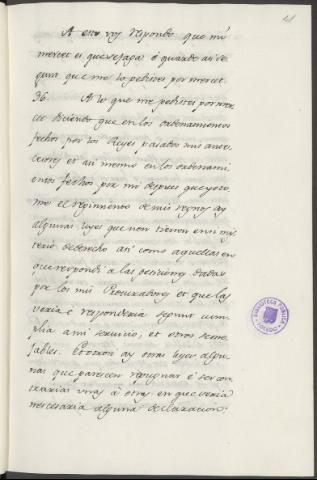 41
A esto vos respondo que mi
merced es que se faga é guarde así se
gund que me lo pedistes por merced.
36. A lo que me pedistes por mer
ced diciendo que en los ordenamientos
fechos por los Reyes pasados mis ante
cesores et así mesmo en los ordenami
entos fechos por mi despues que yo to
me el regimiento de mis regnos ay
algunas leyes que non tienen en si mis
terio de derecho así como aquellas en
que respondi a las peticiones dadas
por los mis Procuradores et que las
veria é responderia segunt cum
plia a mi servicio, et otros seme
jables. Et otrosi ay otras leyes algu
nas que parescen repugnar é ser con
trarias unas á otras en que seria
necesaria alguna declaracion:
BIBLIOTECA PUBLICA
TOLEDO